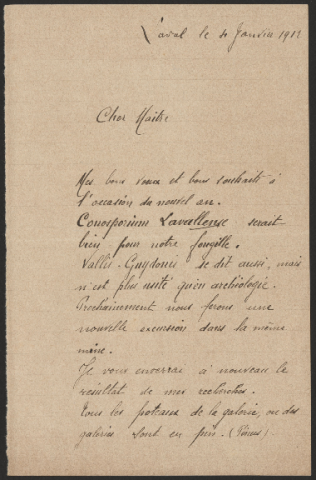 Laval le 4 Janvier 1912
Cher Maître
Mes bons voeux et bons souhaits à
l'occasion du nouvel an.
Conosporium Lavallense serait
bien pour notre fongille.
Vallis-Guydonis se dit aussi, mais
n'est plus usité qu'en archéologie.
Prochainement nous ferons une
nouvelle excursion dans la même
mine.
Je vous enverrai à nouveau le
résultat de mes recherches.
Tous les poteaux de la galerie, ou des
galeries sont en pin. (Pinus)